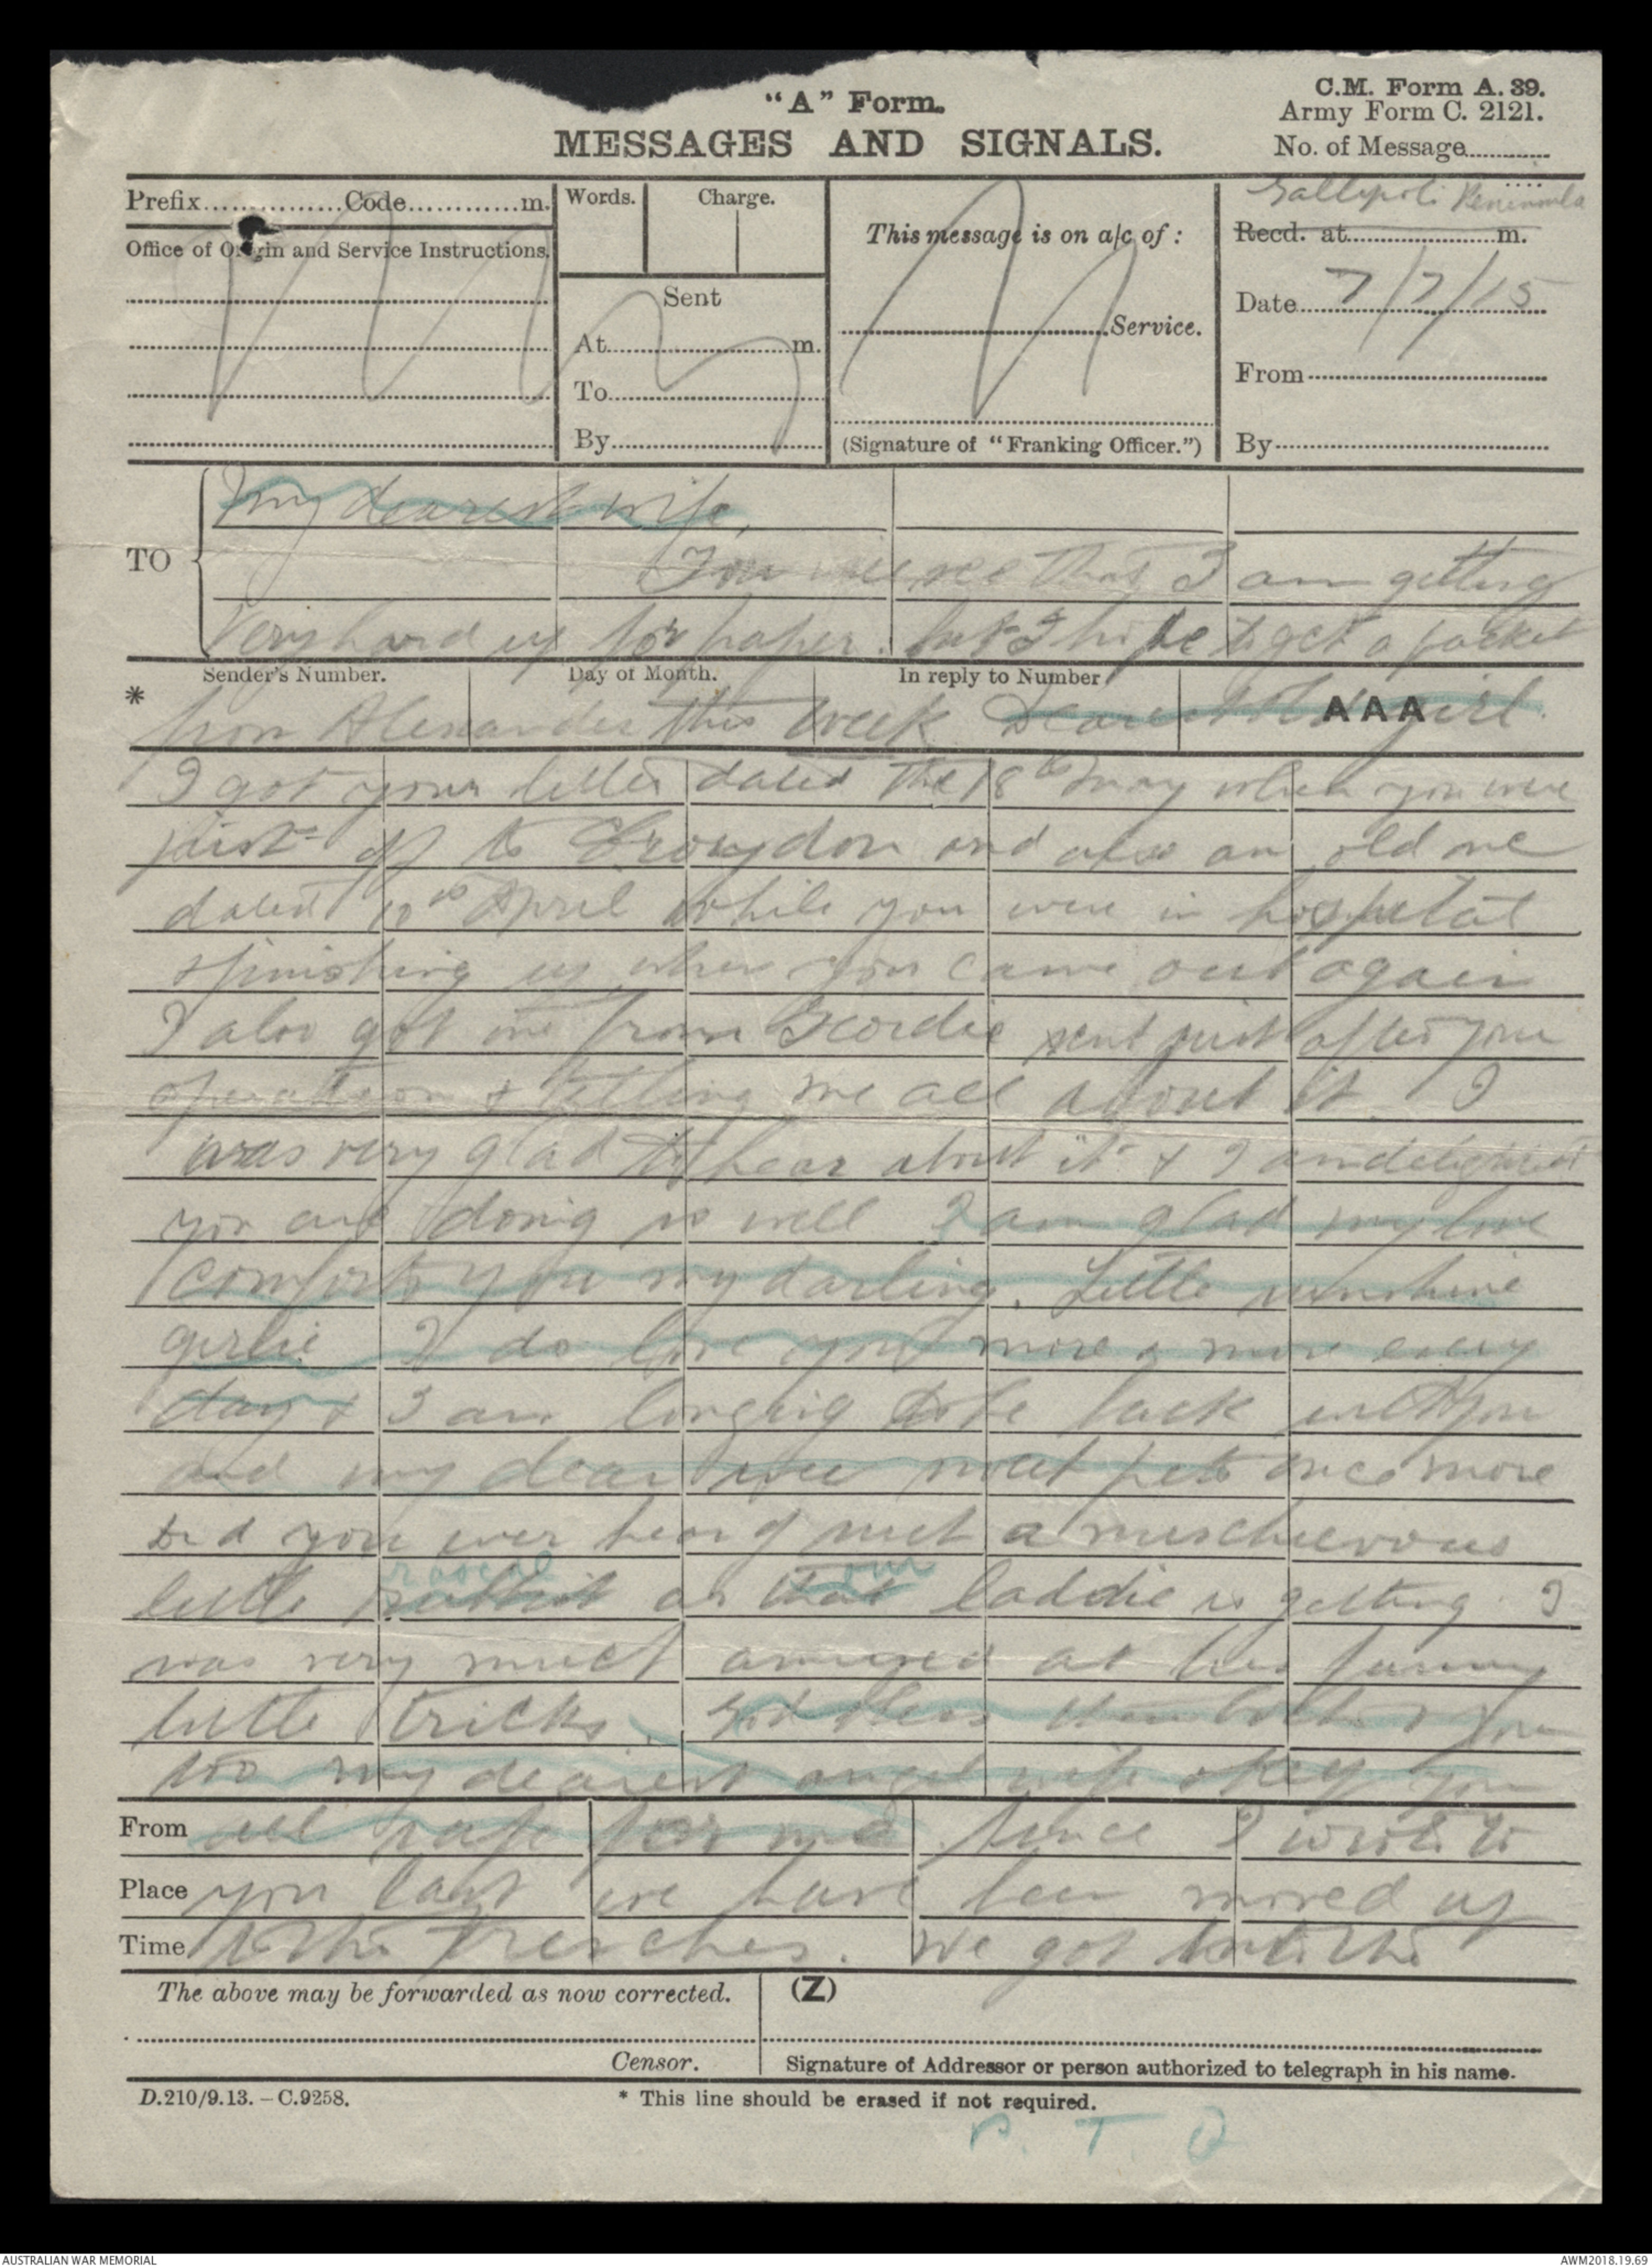 "A" Form.
MESSAGES AND SIGNALS.
C.M. Form A. 39.
Army Form C. 2121.
No. of Message............
Prefix...............Code............m.
Words.
Charge.
This message is on a/c of :
Gallipoli Peninsula
Recd. at.......................m.
Office of Origin and Service Instructions.
Sent
Date 7/7/15
At.......................m.
.......................Service.
To.......................
From.......................
By.......................
(Signature of "Franking Officer.")
By.......................
TO
My dearest wife,
You will see that I am getting
very hard up for paper. but I hope to get a packet
Sender's Number.
Day of Month.
In reply to Number
AAA
* from Alexander this week. Dearest girl.
I got your letter dated the 18th May when you were
just off to Croydon and also an old one
dated 10th April while you were in hospital
up when you came out again
I also got one from Geordie sent just after your
operation & telling me all about it. I
was very glad to hear about it & I am delighted
you are doing so well I am glad my love
comforts you my darling. Little sunshine
girlie I do love you more & more every
day & I am longing to be back with you
and my dear wee pets once more
Did you ever hear of such a mischievous
rascal our
little as that laddie is getting. I
was very much amused at his funny
little tricks. God bless them both & you
too my dearest angel wife & keep you
From all safe for me. Since I wrote to
Place you last we have been moved up
Time to the trenches. We got
The above may be forwarded as now corrected.
(Z)
Censor.
Signature of Addressor or person authorized to telegraph in his name.
D.210/9.13. – C.9258.
* This line should be erased if not required.
P. T. O
AUSTRALIAN WAR MEMORIAL
AWM2018.19.69